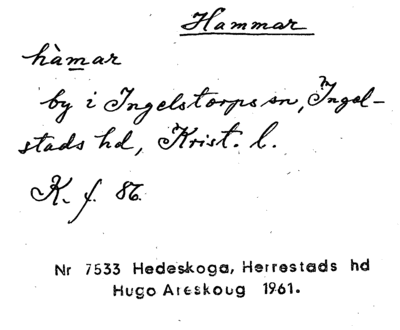 Hammar
hàmar
by i Ingelstorps sn, Ingel-
stads hd, Krist. l.
K. f. 86.
Nr 7533 Hedeskoga, Herrestads hd
Hugo Areskoug 1961.